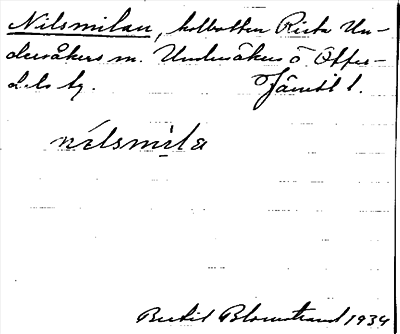 Nilsmilan, kolbotten Rista Un-
dersåkers sn. Undersåkers o. Offer-
dals tg. Jämtl l.
nilsmila
Bertil Blomstrand 1934